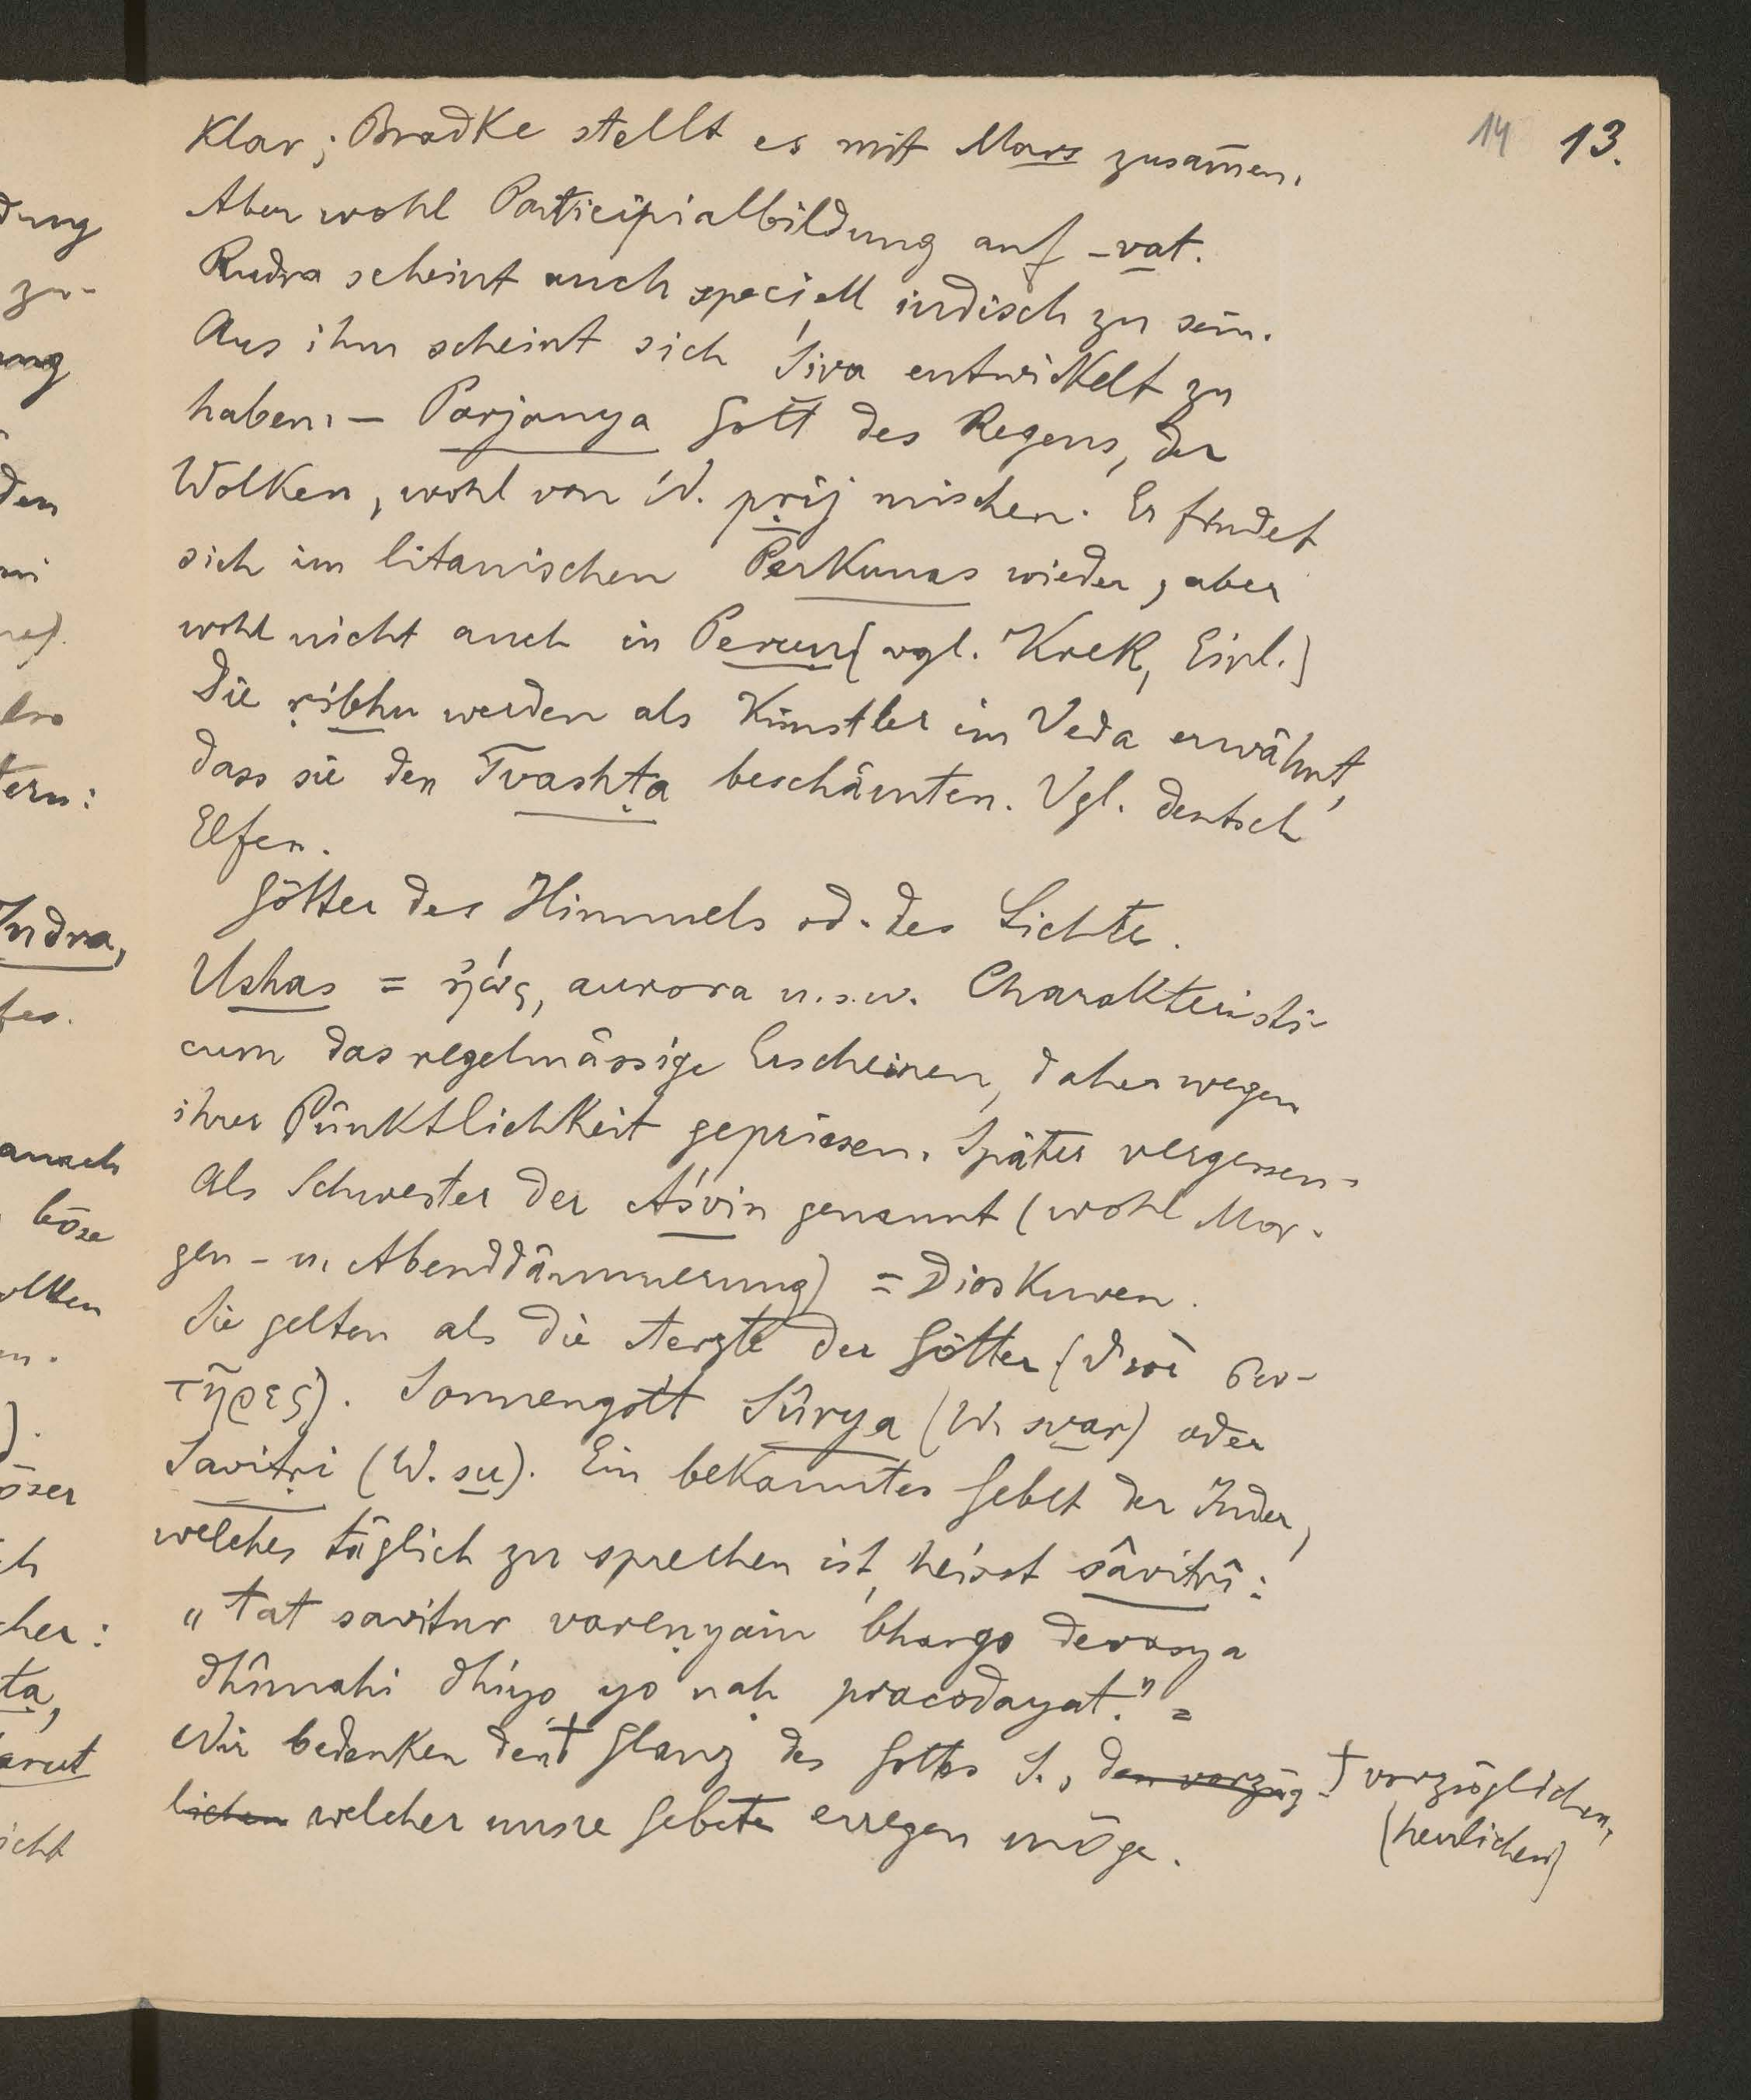 14 13.
Klar; Bradke stellt es mit Mars zusam̄en.
Aber wohl Participialbildung auf -vat.
Rudra scheint auch speciell indisch zu sein.
Aus ihm scheint sich Śiva entwickelt zu
haben. — Parjanya Gott des Regens, der
Wolken, wohl von W. pṛij mischen. Er findet
sich im litauischen Perkunas wieder, aber
wohl nicht auch in Perun (vgl. Krek, Einl.)
Die ṛibhu werden als Künstler im Veda erwähnt,
dass sie den Tvashṭa beschämten. Vgl. deutsch
Elfen.
Götter des Himmels od. des Lichtes.
Ushas = ἠώς, aurora u.s.w. Charakteristi-
cum das regelmässige Erscheinen, daher wegen
ihrer Pünktlichkeit gepriesen. Später vergessen.
Als Schwester der Aśvin genannt (wohl Mor-
gen- u. Abenddämmerung) = Dioskuren.
Sie gelten als die Aerzte der Götter (θεοὶ σω-
τῆρες). Sonnengott Sûrya (W. svar) oder
Savitṛi (W. su). Ein bekanntes Gebet der Inder,
welches täglich zu sprechen ist, heisst sâvitrî:
„tat savitur vareṇyam bhargo devasya
dhîmahi dhiyo yo naḥ pracodayat." =
Wir bedenken den† Glanz des Gottes S., den vorzüg-
lichen welcher unsre Gebete erregen möge.
† vorzüglichen,
(herrlichen)
dung
zu-
ung
den
tern:
Indra,
böse
cher:
ta,
arut
icht